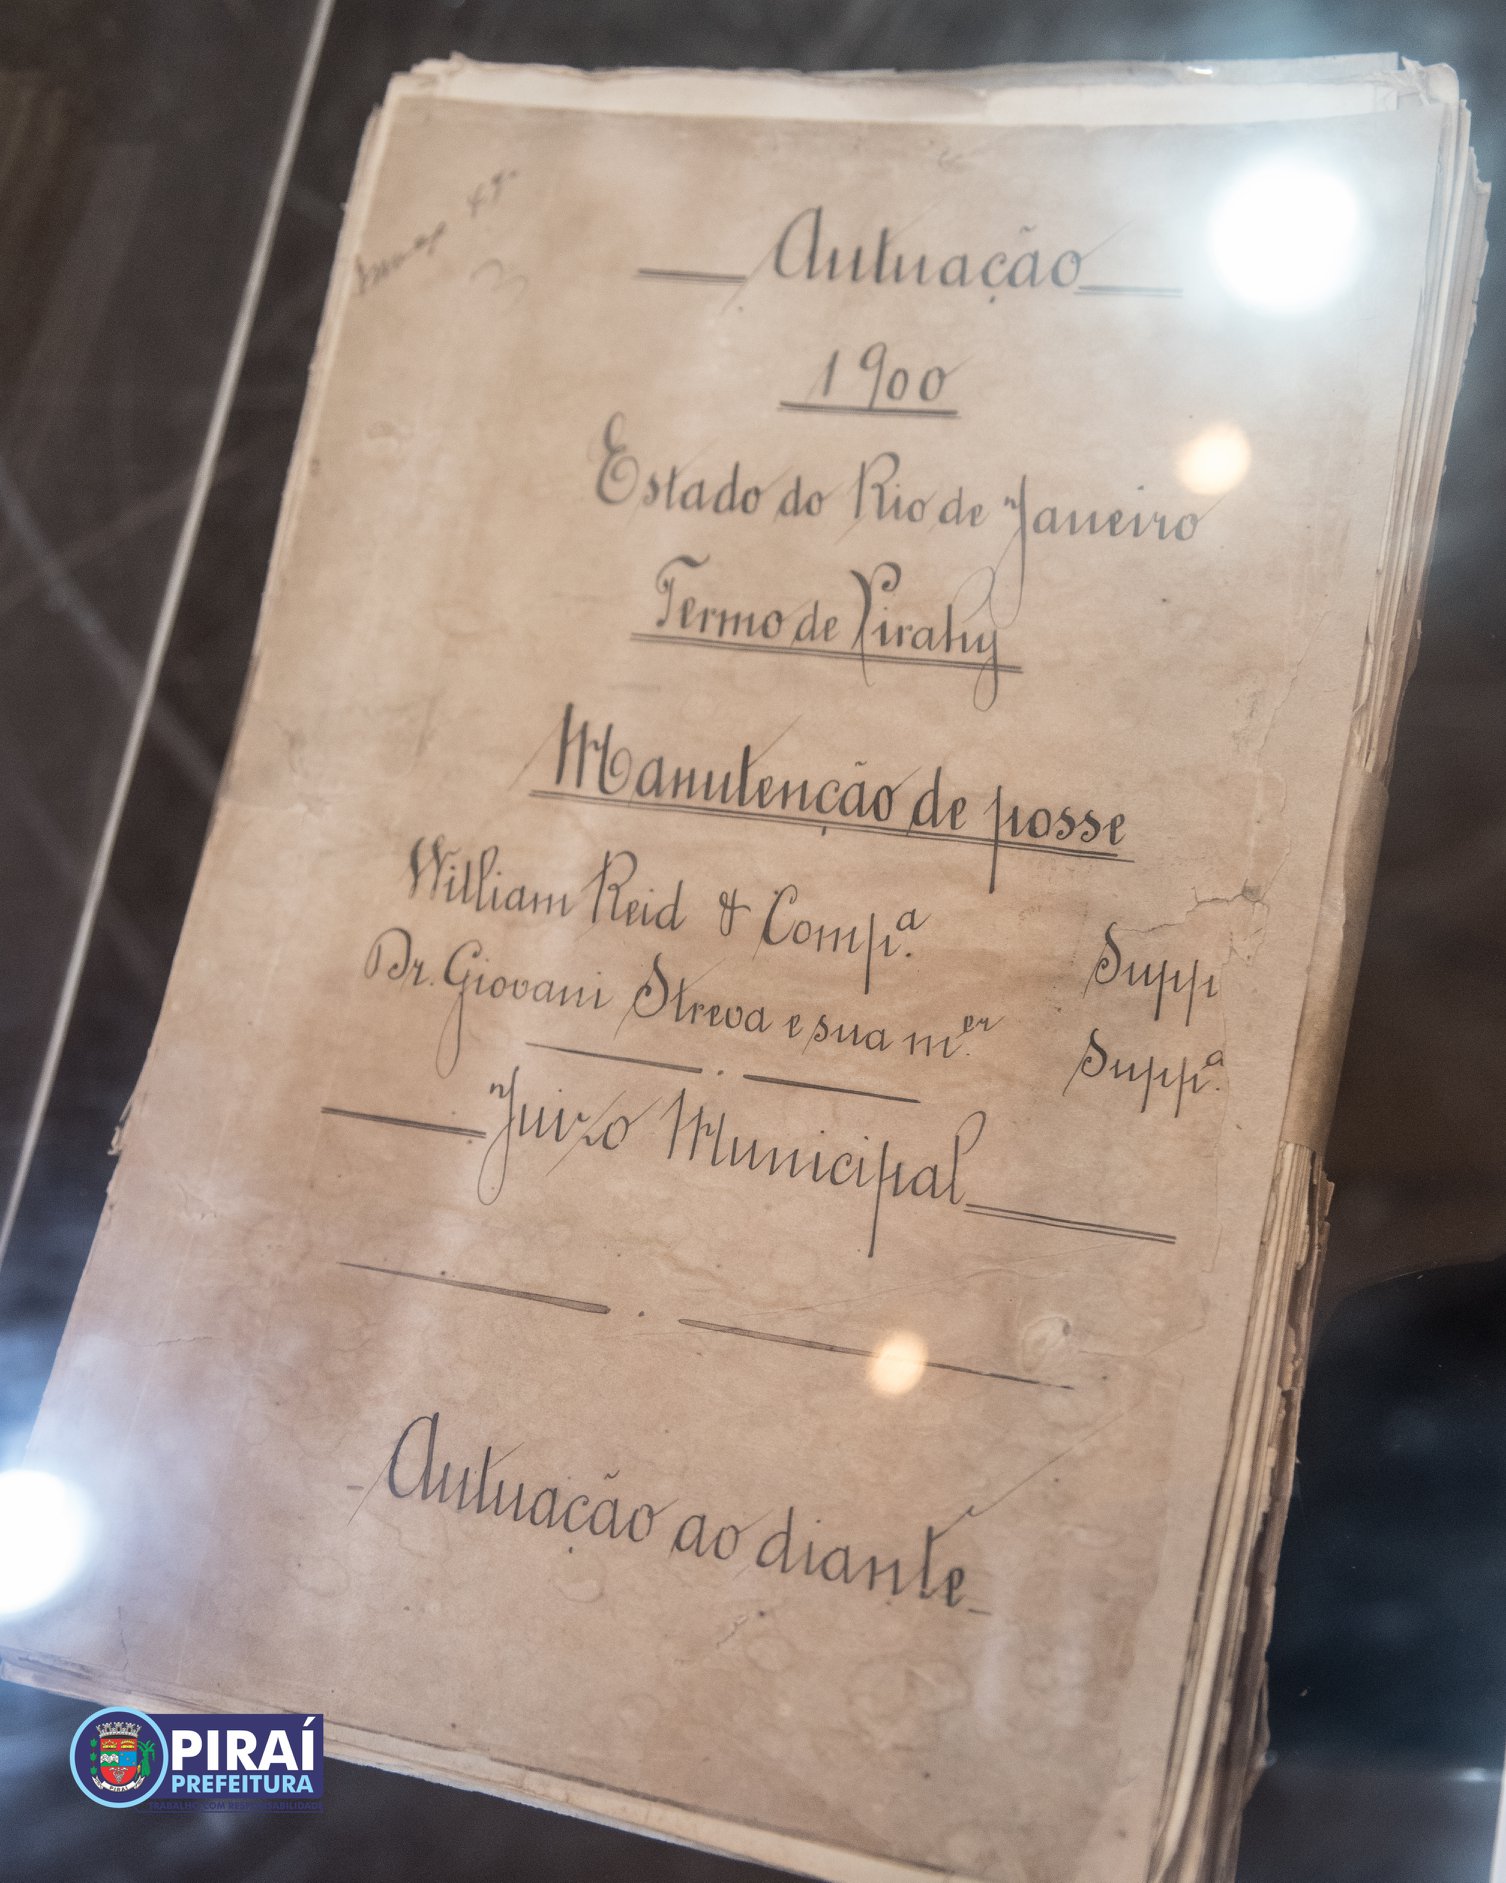 Autuação
1900
Estado do Rio de Janeiro
Termo de Pirahy
Manutenção de posse
William Reid & Comp.ª Supp
Dr. Giovani Streva e sua m.er Supp.ª
Juizo Municipal
Autuação ao diante
PIRAÍ
PREFEITURA
TRABALHO COM RESPONSABILIDADE
PIRAÍ